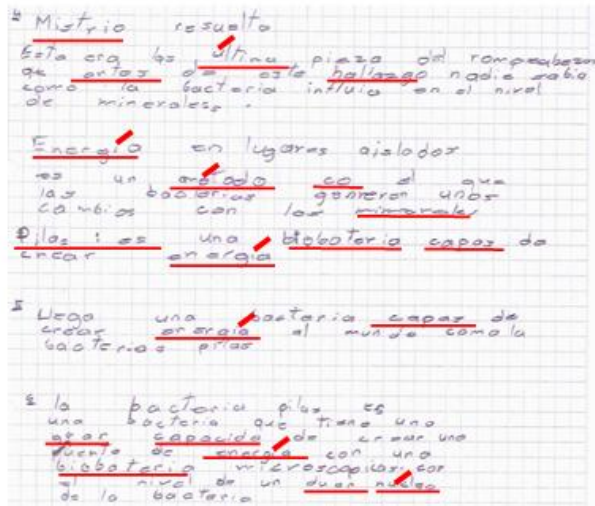 4 Mistrio resuelto
Esta era la última pieza del rompeabezas
que antes de este hallazgo nadie sabia
como la bacteria influia en el nivel
de minerales.
Energía en lugares aislados
es un método co el que
las bacterias generen unos
cambios con los
Pilas: es una biobateria capas de
crear energia
5 Llego una bacteria capas de
crear energia al mundo como la
bacterias pilas
6 la bacteria pilas es
una bacteria que tiene una
capacida de crear una
fuente de energia con una
biobateria microscopicas con
el nivel de un
de la bacteria